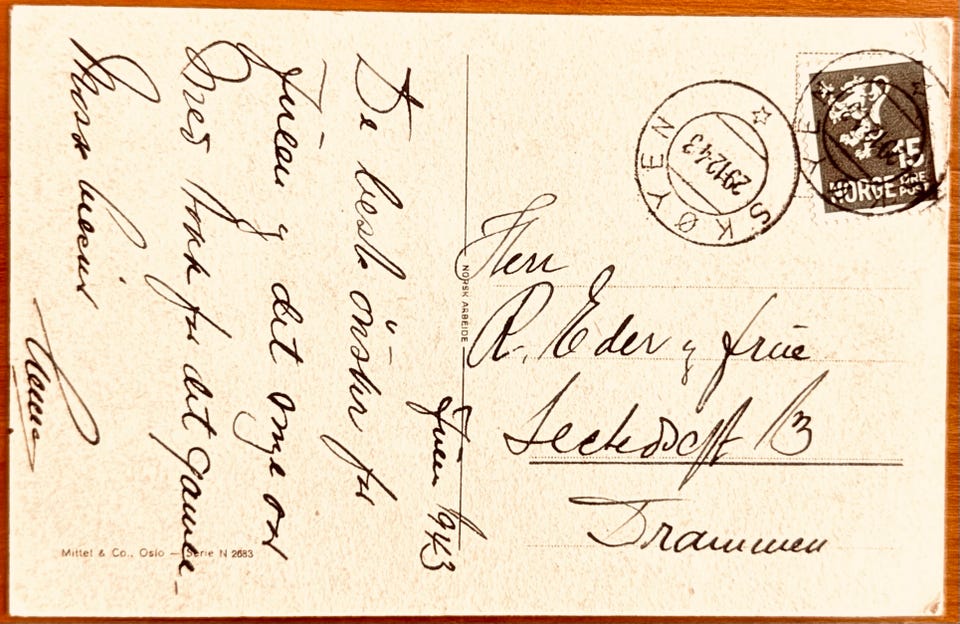 Julen 1943
De beste önsker for
Julen og det nye år
Bred takk for det gamle
Masse hilsner
NORSK ARBEIDE
Mittet & Co., Oslo — Serie N 2683
SKØYEN
29 12 43
NORGE
15
ØRE
POST
Herr
R. Eder og frue
13
Drammen